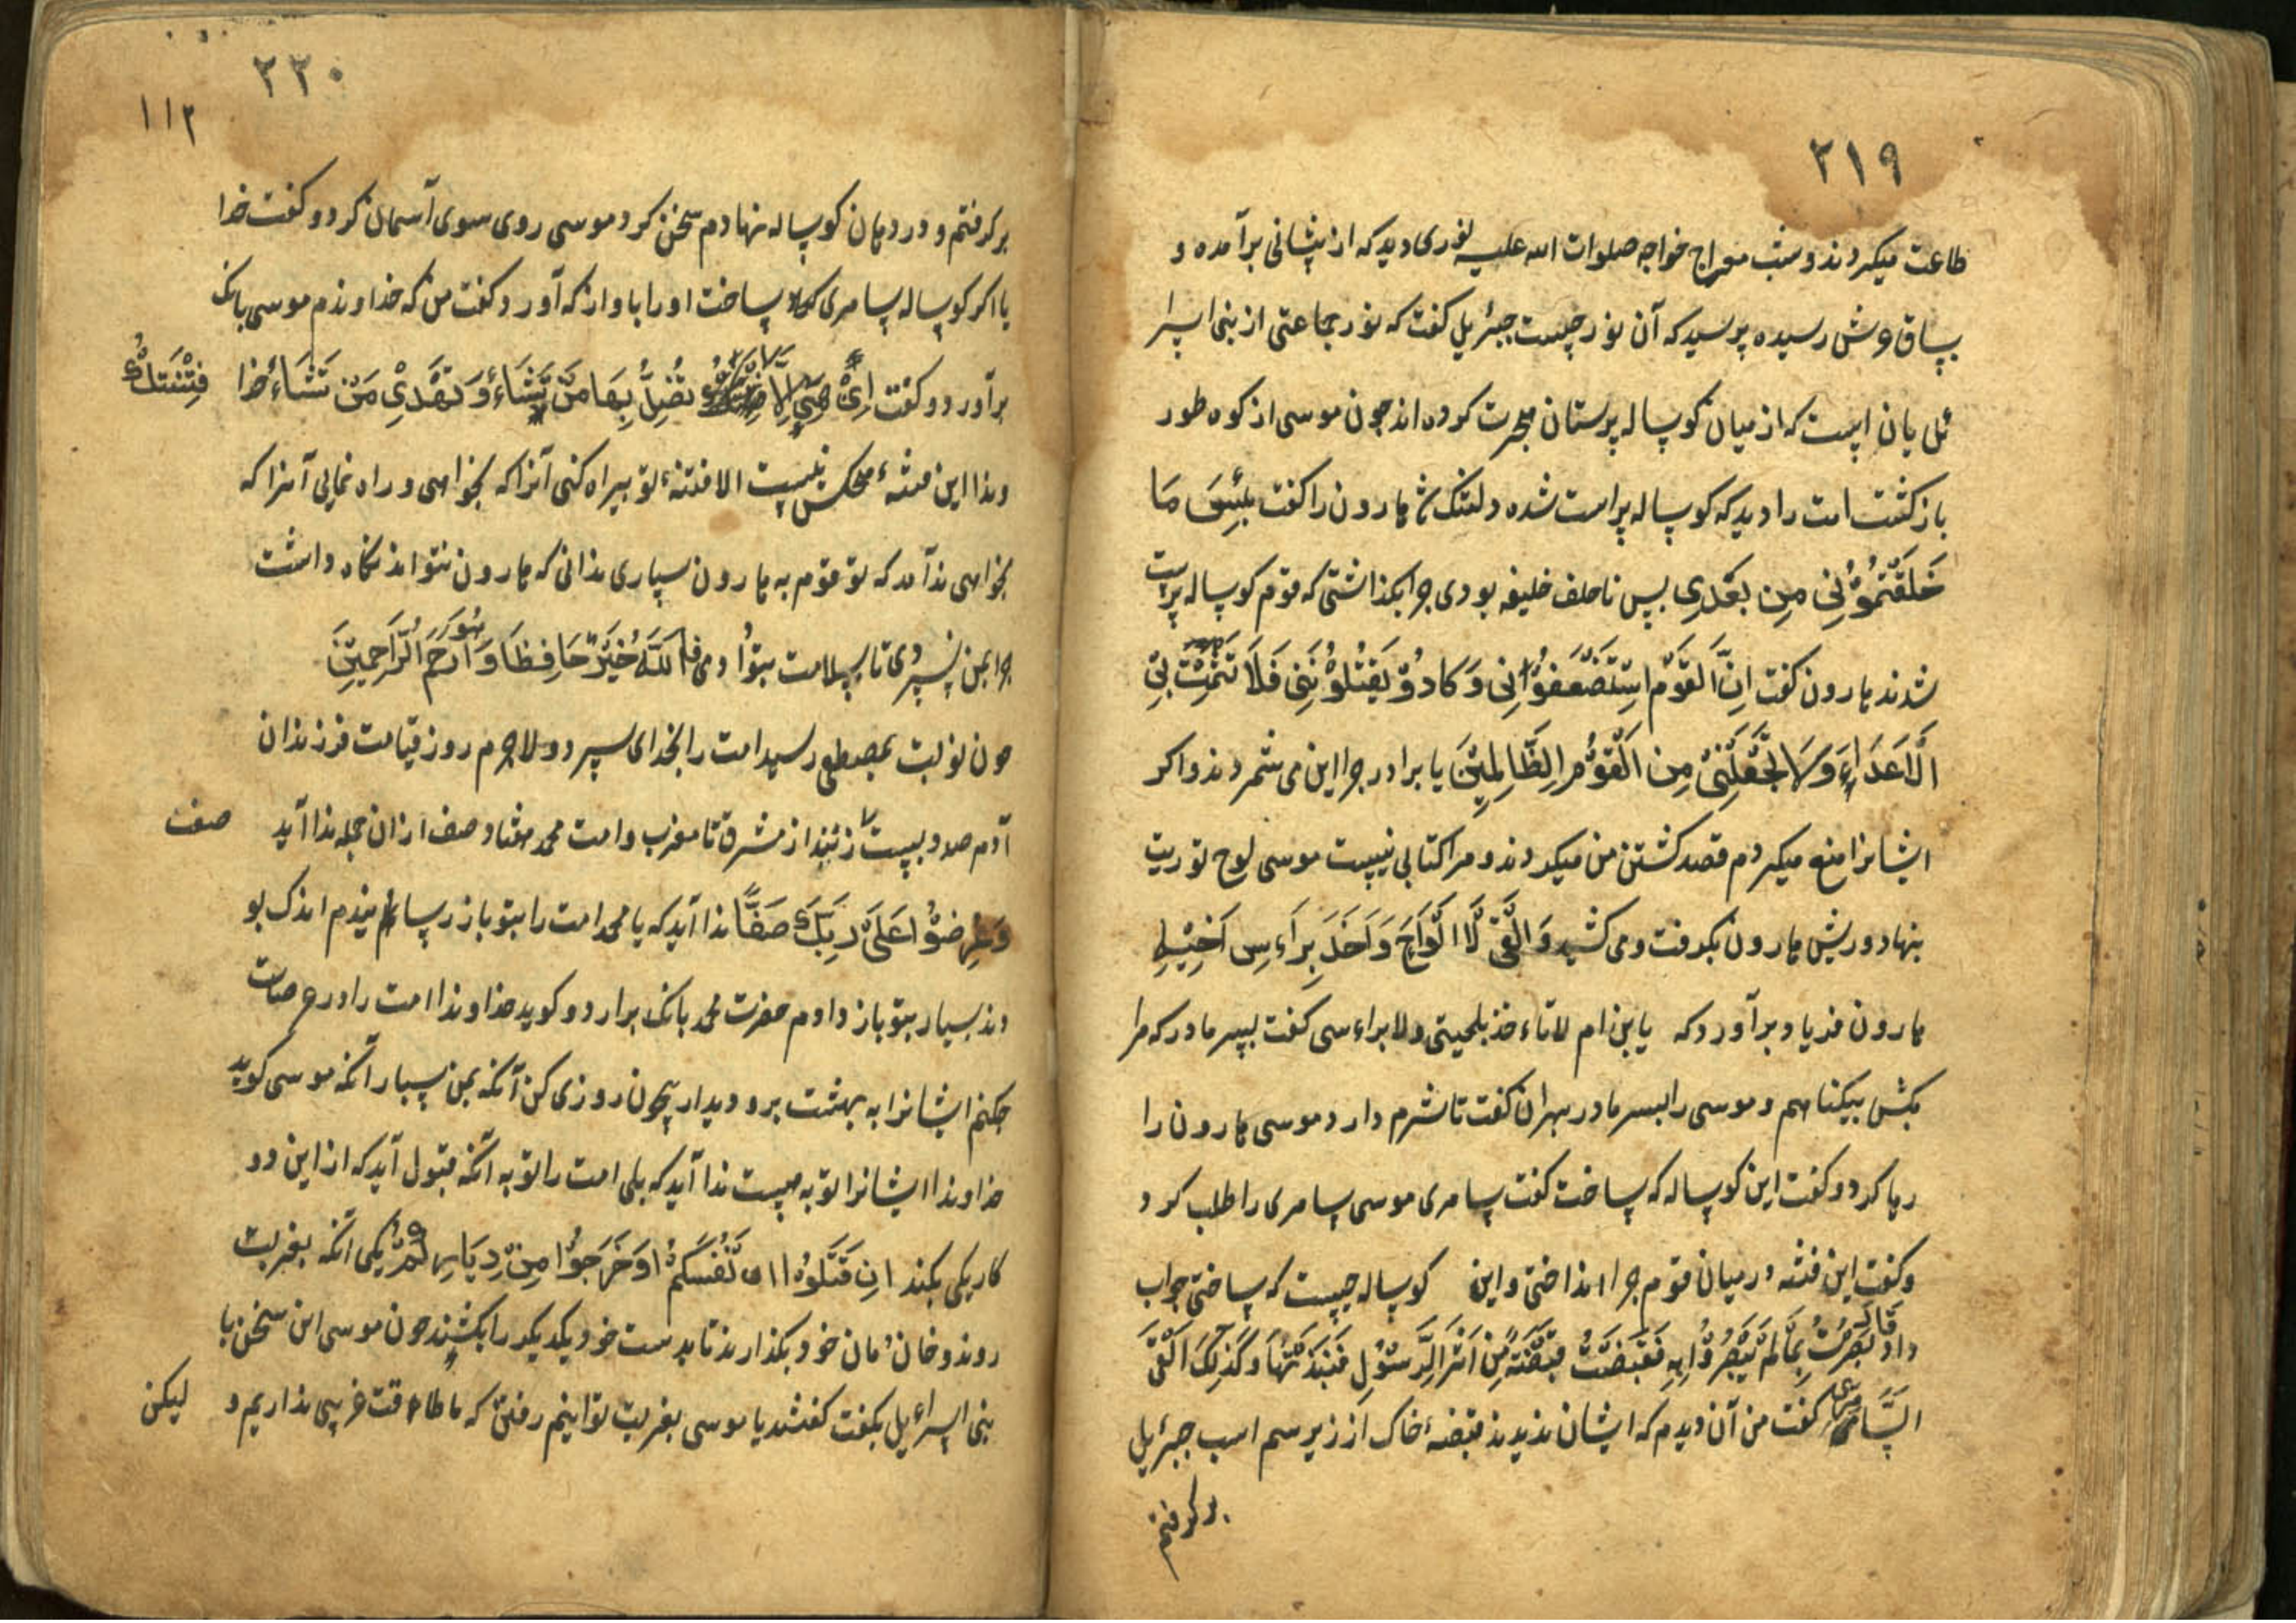 ۲۱۹
طاعت میکردند و شب معراج خواجه صلوات الله علیه نوری دید که از پیشانی برآمده و
بساق عرش رسیده پرسید که آن نور چیست جبرئیل کفت که نور جماعتی از بنی اسرا
ئل یان است که از میان کوساله پرستان هجرت کرده اند چون موسی از کوه طور
بازکشت امت را دید که کوساله پراست شده دلتنک هارون را کفت بِئسَ مَا
خَلَفْتُمُوْنِی مِن بَعْدِی پس ناخلف خلیفه بودی چرا بکذاشتی که قوم کوساله پرست
شدند هارون کفت اِنَّ الْقَوْمَ اسْتَضْعَفُوْانِی وَ کَادُوْ یَقْتُلُوْنَنِی فَلَا تُشْمِتْ بِیَ
الْاَعَدَاءِ وَلَا تَجْعَلْنِیْ مِن الْقَوْمِ الظَّالِمِیْنَ یا برادر چرا این می شمردند و اکر
ایشانرا منع میکردم قصد کشتن من میکردند و مرا کتابی نیست موسی لوح توریت
بنهاد و ریش هارون بکرفت و می کشید وَ الْقَی لْاَ الْوَاحَ وَ اَخَذَ بِرَاءسِ اَخِیْهِ
هارون فریاد برآورد که یابن ام لاتاءخذ بلحیتی ولا براءسی کفت پسر مادر که مرا
مکش بیکناهم و موسی را پسر مادر بهران کفت تا شرم دارد موسی هارون را
رها کرد و کفت این کوساله که ساخت کفت سامری موسی سامری را طلب کرد
و کفت این فتنه در میان قوم چرا انداختی و این کوساله چیست که ساختی جواب
داد قَالَ بَصُرْتُ بِمَا لَمْ یَبْصُرُوْا بِهِ فَقَبَضْتُ قَبْضَةً مِّنْ اَثَرِ الرَّسُوْلِ فَنَبَذْتُهَا وَ کَذٰلِکَ الْقَی
السَّامری کفت من آن دیدم که ایشان ندیدند قبضهٔ خاک از زیر سم اسب جبرئیل
برکرفتم
۲۲۰
۱۱۲
برکرفتم و در دهان کوساله نهادم سخن کرد موسی روی سوی آسمان کرد و کفت خدا
یا اکر کوساله سامری ساخت او را باواز که آورد کفت من که خداوندم موسی بانک
برآورد و کفت اِنْ هِیَ اِلَّا تُضِلُّ بِهَا مَنْ تَشَاءُ وَ تَهْدِیْ مَنْ تَشَاءُ خدا فِتْنَتُکَ
وندا این فتنهٔ کس نیست الا فتنهٔ تو بیراه کنی آنرا که بخواهی و راه نمایی آنرا که
بخواهی ندا آمد که تو قوم به هارون سپاری ندانی که هارون نتواند نکاه داشت
چرا بمن نسپردی تا بسلامت بتو دادمی فَاللّٰهُ خَیْرٌ حَافِظَا وَ هُوَ اَرْحَمُ الرَّاحِمِیْنَ
چون نوبت بمصطفی رسید امت را بخدای سپرد و لاجرم روز قیامت فرزندان
آدم صد و بیست زنند از مشرق تا مغرب و امت محمد هشتاد صف ازان جمله ندا آید صف
وَعُرِضُوْا عَلیٰ رَبِّکَ صَفًّا ندا آید که یا محمد امت را بتو باز رسانیدم اندک بو
دند بسیار بتو باز دادم حضرت محمد بانک برارد و کوید خداوندا امت را در عرصات
چکنم ایشانرا به بهشت برو دیدار بیچون روزی کن آنکه بمن سپار آنکه موسی کوید
خداوندا ایشانرا توبه چیست ندا آید که بلی امت را توبه آنکه قبول آید که از این دو
کار یکی بکنند انِ قْتُلُوْا اَنْفُسَکُمْ اوَ خْرُجُوْا مِنْ دِیَارِهِمْ یکی آنکه بغربت
روند و خان و مان خود بکذارند تا بدست خود یکدیکر را بکشند چون موسی این سخن با
بنی اسراءیل بکفت کفتند یا موسی بغربت توانیم رفتن که ما طاقت غریبی نداریم و لیکن